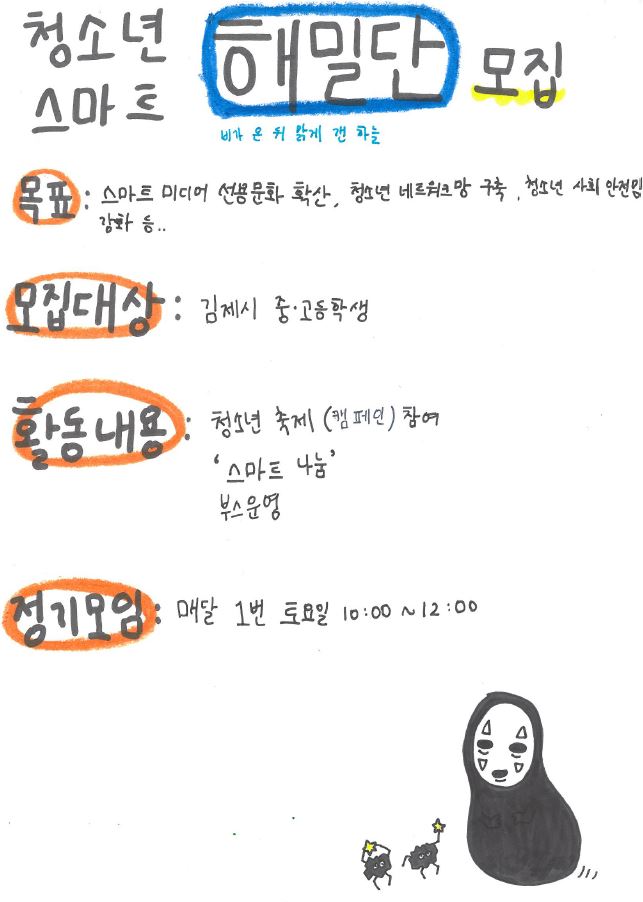 청소년 스마트 해밀단 모집
비가 온 뒤 맑게 갠 하늘
목표 : 스마트 미디어 선용문화 확산, 청소년 네트워크망 구축, 청소년 사회안전망
강화 등..
모집대상 : 김제시 중·고등학생
활동내용 : 청소년 축제 (캠페인) 참여
'스마트 나눔'
부스운영
정기모임 : 매달 1번 토요일 10:00 ~ 12:00